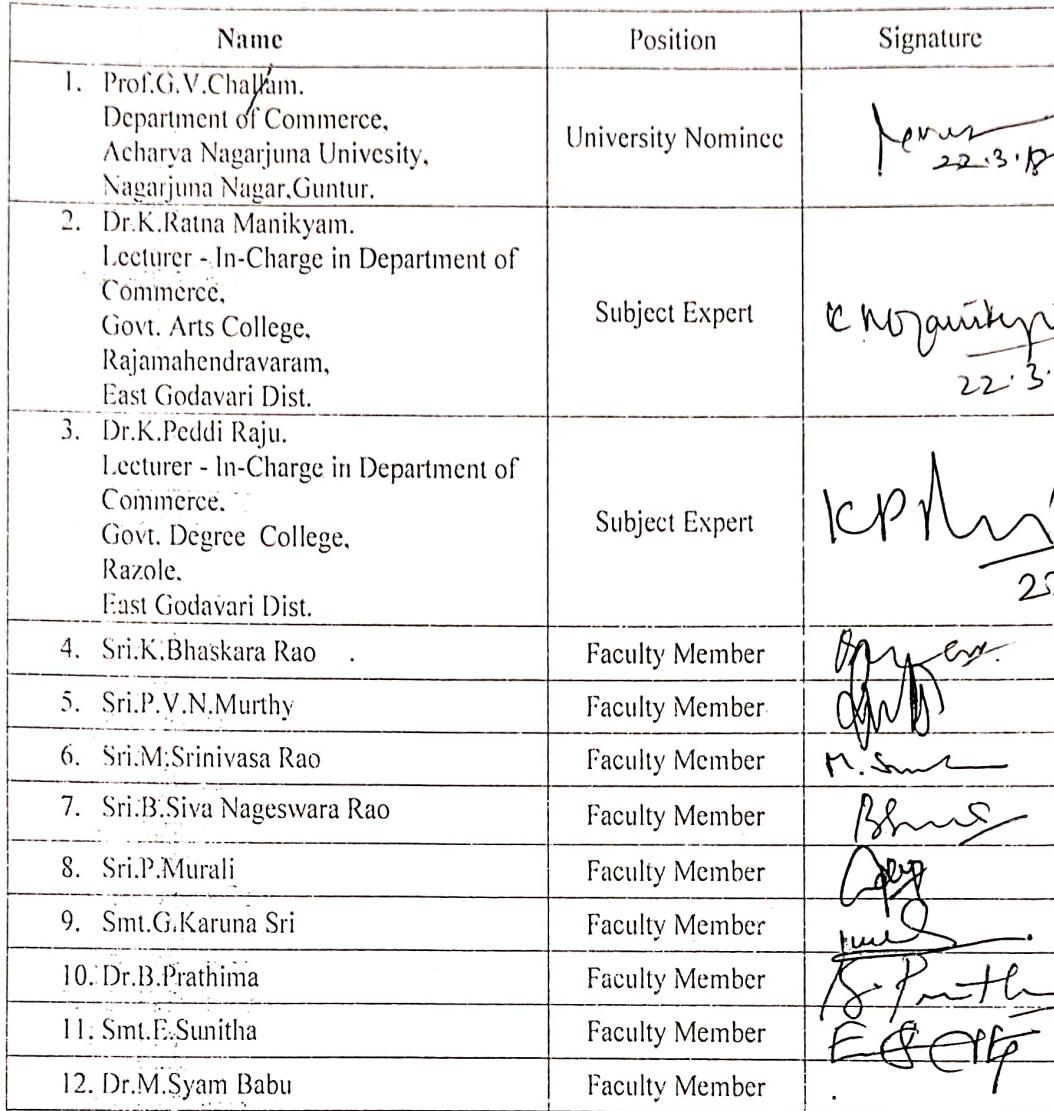 Name Position Signature
1. Prof.G.V.Challam.
Department of Commerce,
Acharya Nagarjuna Univesity,
Nagarjuna Nagar,Guntur,
University Nominee
22.3.18
2. Dr.K.Ratna Manikyam.
Lecturer - In-Charge in Department of
Commerce,
Govt. Arts College,
Rajamahendravaram,
East Godavari Dist.
Subject Expert
22.3.
3. Dr.K.Peddi Raju.
Lecturer - In-Charge in Department of
Commerce.
Govt. Degree College,
Razole.
East Godavari Dist.
Subject Expert
4. Sri.K.Bhaskara Rao Faculty Member
5. Sri.P.V.N.Murthy Faculty Member
6. Sri.M.Srinivasa Rao Faculty Member
7. Sri.B.Siva Nageswara Rao Faculty Member
8. Sri.P.Murali Faculty Member
9. Smt.G.Karuna Sri Faculty Member
10. Dr.B.Prathima Faculty Member
11. Smt.E.Sunitha Faculty Member
12. Dr.M.Syam Babu Faculty Member